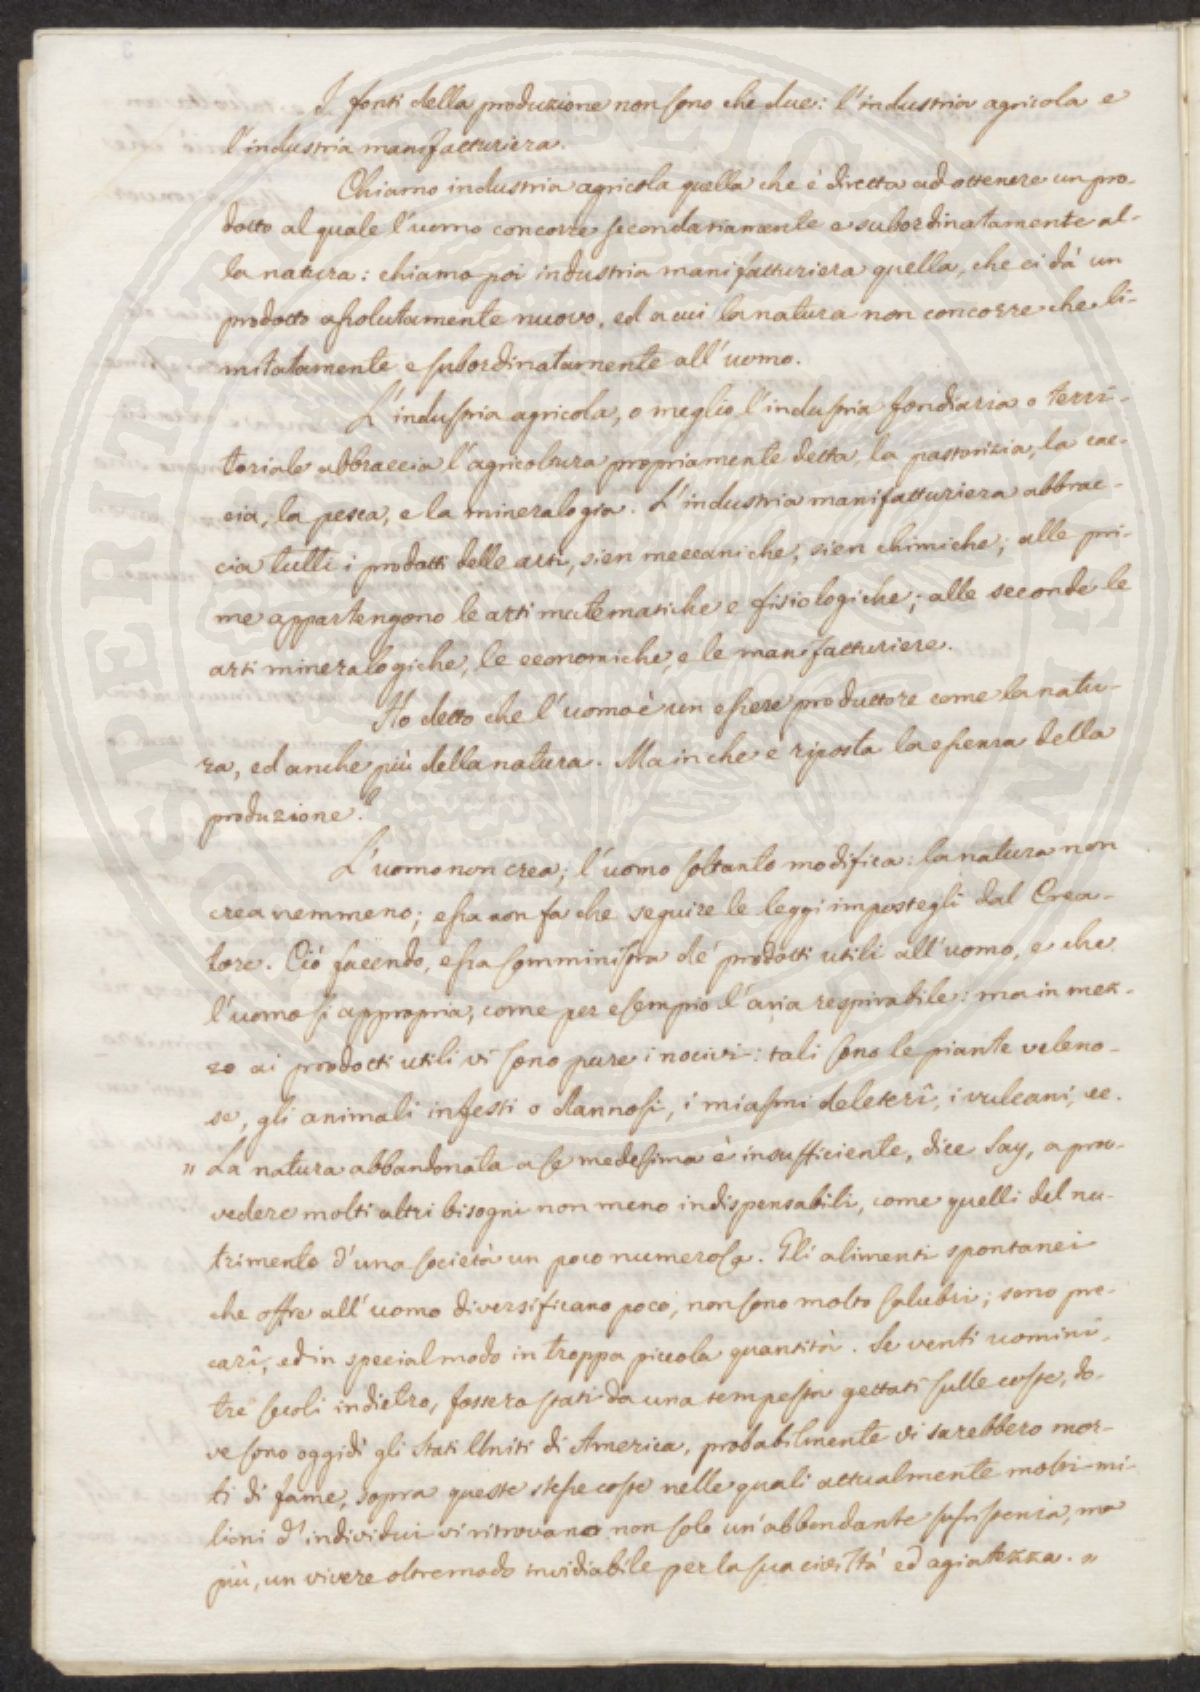 I fonti della produzione non sono che due: l'industria agricola e
l'industria manifatturiera.
Chiamo industria agricola quella che è diretta ad ottenere un pro-
dotto al quale l'uomo concorre secondariamente e subordinatamente al-
la natura: chiamo poi industria manifatturiera quella, che ci dà un
prodotto assolutamente nuovo, ed a cui la natura non concorre che li-
mitatamente e subordinatamente all'uomo.
L'industria agricola, o meglio l'industria fondiaria o terri-
toriale abbraccia l'agricoltura propriamente detta, la pastorizia, la cac-
cia, la pesca, e la mineralogia. L'industria manifatturiera abbrac-
cia tutti i prodotti delle arti, sien meccaniche, sien chimiche; alle pri-
me appartengono le arti matematiche e fisiologiche; alle seconde le
arti mineralogiche, le economiche, e le manifatturiere.
Ho detto che l'uomo è un essere produttore come la natu-
ra, ed anche più della natura. Ma in che e riposta la essenza della
produzione?
L'uomo non crea; l'uomo soltanto modifica: la natura non
crea nemmeno; essa non fa che seguire le leggi impostegli dal Crea-
tore. Ciò facendo, essa somministra de' prodotti utili all'uomo, e che
l'uomo si appropria, come per esempio l'aria respirabile: ma in mez-
zo ai prodotti utili vi sono pure i nocivi: tali sono le piante veleno-
se, gli animali infesti o dannosi, i miasmi deleterî, i vulcani, ec.
" La natura abbandonata a se medesima è insufficiente, dice Say, a prov-
vedere molti altri bisogni non meno indispensabili, come quelli del nu-
trimento d'una società un poco numerosa. Gli alimenti spontanei
che offre all'uomo diversificano poco, non sono molto salubri; sono pre-
carî, ed in special modo in troppa piccola quantità. Se venti uomini,
tre secoli indietro, fossero stati da una tempesta gettati sulle coste, do-
ve sono oggidì gli Stati Uniti di America, probabilmente vi sarebbero mor-
ti di fame, sopra queste stesse coste nelle quali attualmente molti mi-
lioni d'individui vi ritrovano non solo un'abbondante sussistenza, ma
più, un vivere oltremodo invidiabile per la sua civiltà ed agiatezza. "
SPERITNE PUBLICA